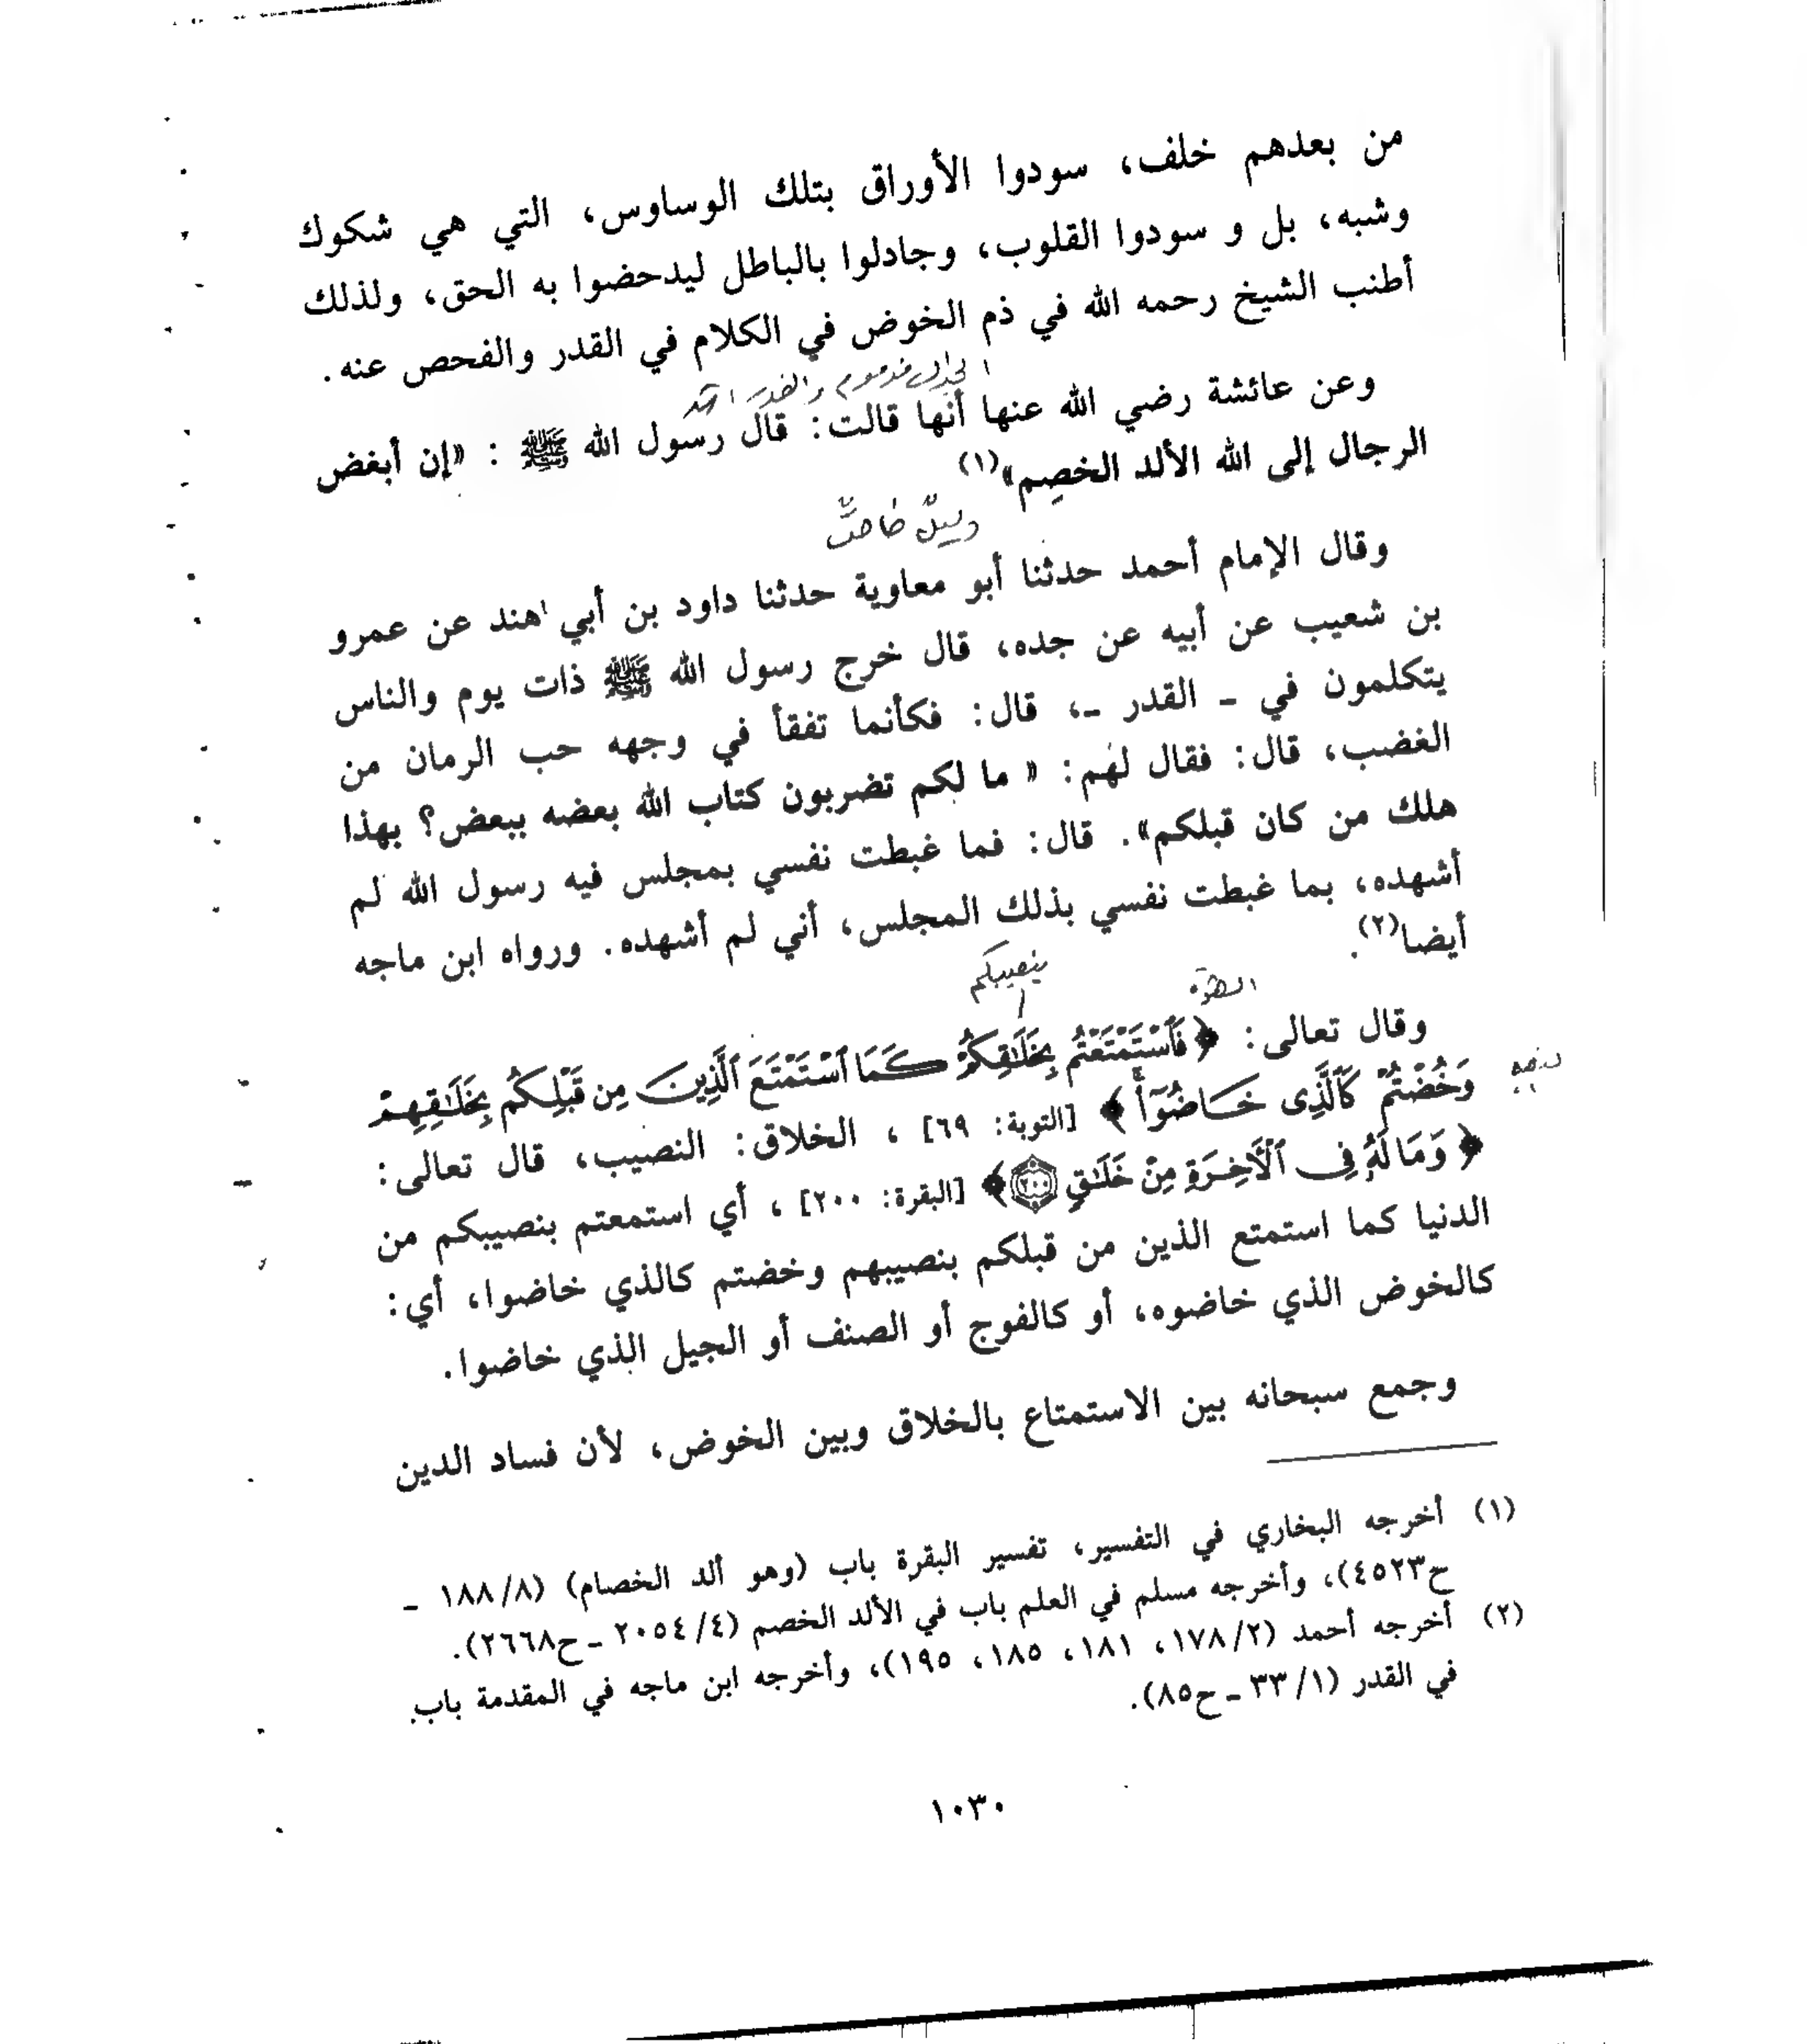 من بعدهم خلف، سودوا الأوراق بتلك الوساوس، التي هي شكوك
وشبه، بل و سودوا القلوب، وجادلوا بالباطل ليدحضوا به الحق، ولذلك
أطنب الشيخ رحمه الله في ذم الخوض في الكلام في القدر والفحص عنه.
الجدل مذموم
وعن عائشة رضي الله عنها أنها قالت: قال رسول الله ﷺ : «إن أبغض
الرجال إلى الله الألد الخصِم»(١)
وقال الإمام أحمد حدثنا أبو معاوية حدثنا داود بن أبي هند عن عمرو
بن شعيب عن أبيه عن جده، قال خرج رسول الله ﷺ ذات يوم والناس
يتكلمون في ـ القدر ـ، قال: فكأنما تفقأ في وجهه حب الرمان من
الغضب، قال: فقال لهم: « ما لكم تضربون كتاب الله بعضه ببعض؟ بهذا
هلك من كان قبلكم». قال: فما غبطت نفسي بمجلس فيه رسول الله لم
أشهده، بما غبطت نفسي بذلك المجلس، أني لم أشهده. ورواه ابن ماجه
أيضا(٢).
بنصيبكم
وقال تعالى: ﴿فَٱسْتَمْتَعْتُم بِخَلَٰقِكُمْ كَمَا ٱسْتَمْتَعَ ٱلَّذِينَ مِن قَبْلِكُم بِخَلَٰقِهِمْ
وَخُضْتُمْ كَٱلَّذِى خَاضُوٓا۟﴾ [التوبة: ٦٩] ، الخلاق: النصيب، قال تعالى:
﴿وَمَا لَهُۥ فِى ٱلْأَخِرَةِ مِنْ خَلَٰقٍ ٢٠٠﴾ [البقرة: ٢٠٠] ، أي استمعتم بنصيبكم من
الدنيا كما استمتع الذين من قبلكم بنصيبهم وخضتم كالذي خاضوا، أي:
كالخوض الذي خاضوه، أو كالفوج أو الصنف أو الجيل الذي خاضوا.
وجمع سبحانه بين الاستمتاع بالخلاق وبين الخوض، لأن فساد الدين
(١) أخرجه البخاري في التفسير، تفسير البقرة باب (وهو ألد الخصام) (١٨٨/٨ ـ
ح٤٥٢٣)، وأخرجه مسلم في العلم باب في الألد الخصم (٢٠٥٤/٤ ـ ح٢٦٦٨).
(٢) أخرجه أحمد (١٧٨/٢، ١٨١، ١٨٥، ١٩٥)، وأخرجه ابن ماجه في المقدمة باب
في القدر (٣٣/١ ـ ح٨٥).
١٠٣٠